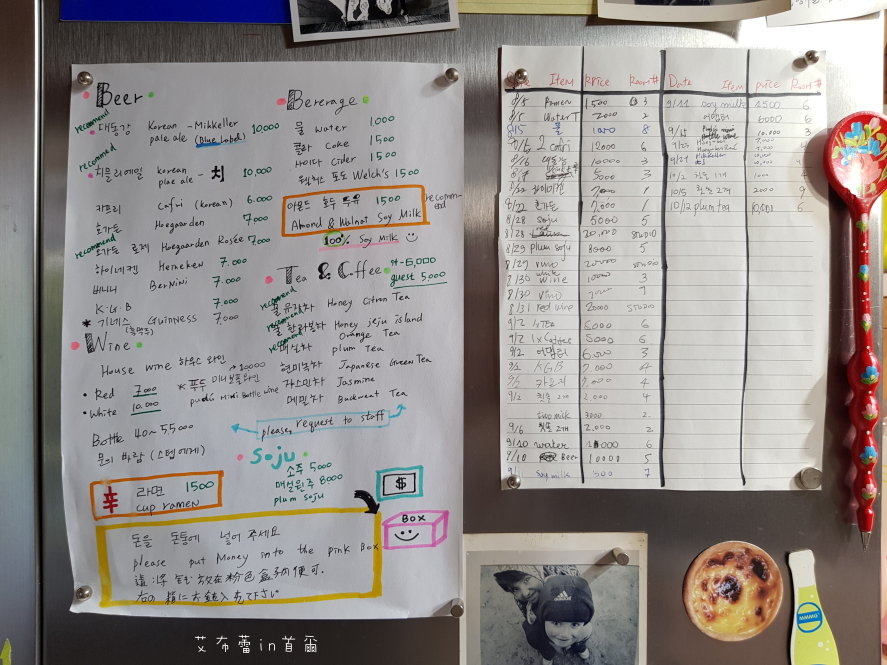 Beer
recommend
대동강 Korean - Mikkeller 10,000
pale ale (Blue label)
recommend
치믈리에일 korean 10,000
pale ale - 치
카프리 Cafri (korean) 6.000
호가든 Hoegaarden 7.000
recommend
호가든 로제 Hoegaarden Rosée 7,000
하이네켄 Heineken 7.000
버니니 BerNini 7.000
K.G.B 7.000
* 기네스 GUINNESS 7,000
(흑맥주)
Wine
House wine 하우스 와인
• Red 7000
• White 10.000
→ 10000
* 푸두 미니보틀와인
pudu Mini Bottle wine
Bottle 40~55,000
문의 바람 (스텝에게)
라면 1500
cup ramen
Bererage
물 water 1,000
콜라 Coke 1500
사이다 Cider 1500
웰치스 포도 Welch's 1500
아몬드 호두 두유 1500
Almond & Walnut Soy Milk
recommend
100% Soy Milk
Tea & Coffee
6,000
guest 5,000
recommend
꿀유자차 Honey Citron Tea
recommend
꿀 한라봉차 Honey jeju island
Orange Tea
recommend
매실차 plum Tea
현미녹차 Japanese Green Tea
자스민차 Jasmine
메밀차 Buckweat Tea
please, request to staff
Soju
소주 5000
매실원주 8000
plum soju
$
BOX
돈을 돈통에 넣어 주세요
please put Money into the pink Box
請將錢放在粉色盒子內便可.
右の箱にお金入れて下さい
Item Price Room# Date Item price Room#
8/5 Ramen 1500 3
8/5 Water T 2000 2
8/15 물 1000 8
2 Cafri 12000 6
대동강 10000 3
8/22 하이네켄 7000 1
8/22 호가든 7,000 1
8/28 Soju 5000 5
8/28 20,000 STUDIO
8/29 plum soju 8000 5
8/29 vino 20000 STUDIO
8/30 wine 3
8/30 vino
8/31 red wine STUDIO
9/2 4 TEA 6
9/2 1x Coffee 5000 6
9/2 6,000 3
K.G.B 7,000 4
카프리 4
9/2 2,000 4
soy milk 3000 2
9/6 2,000 2
9/10 water 6
9/10 Beer 10000 5
soy milk 7
9/11 soy milk 1500 6
6000 6
10.000 3
10/2
10/5 2000 9
10/12 plum tea 6
艾布蕾in首爾